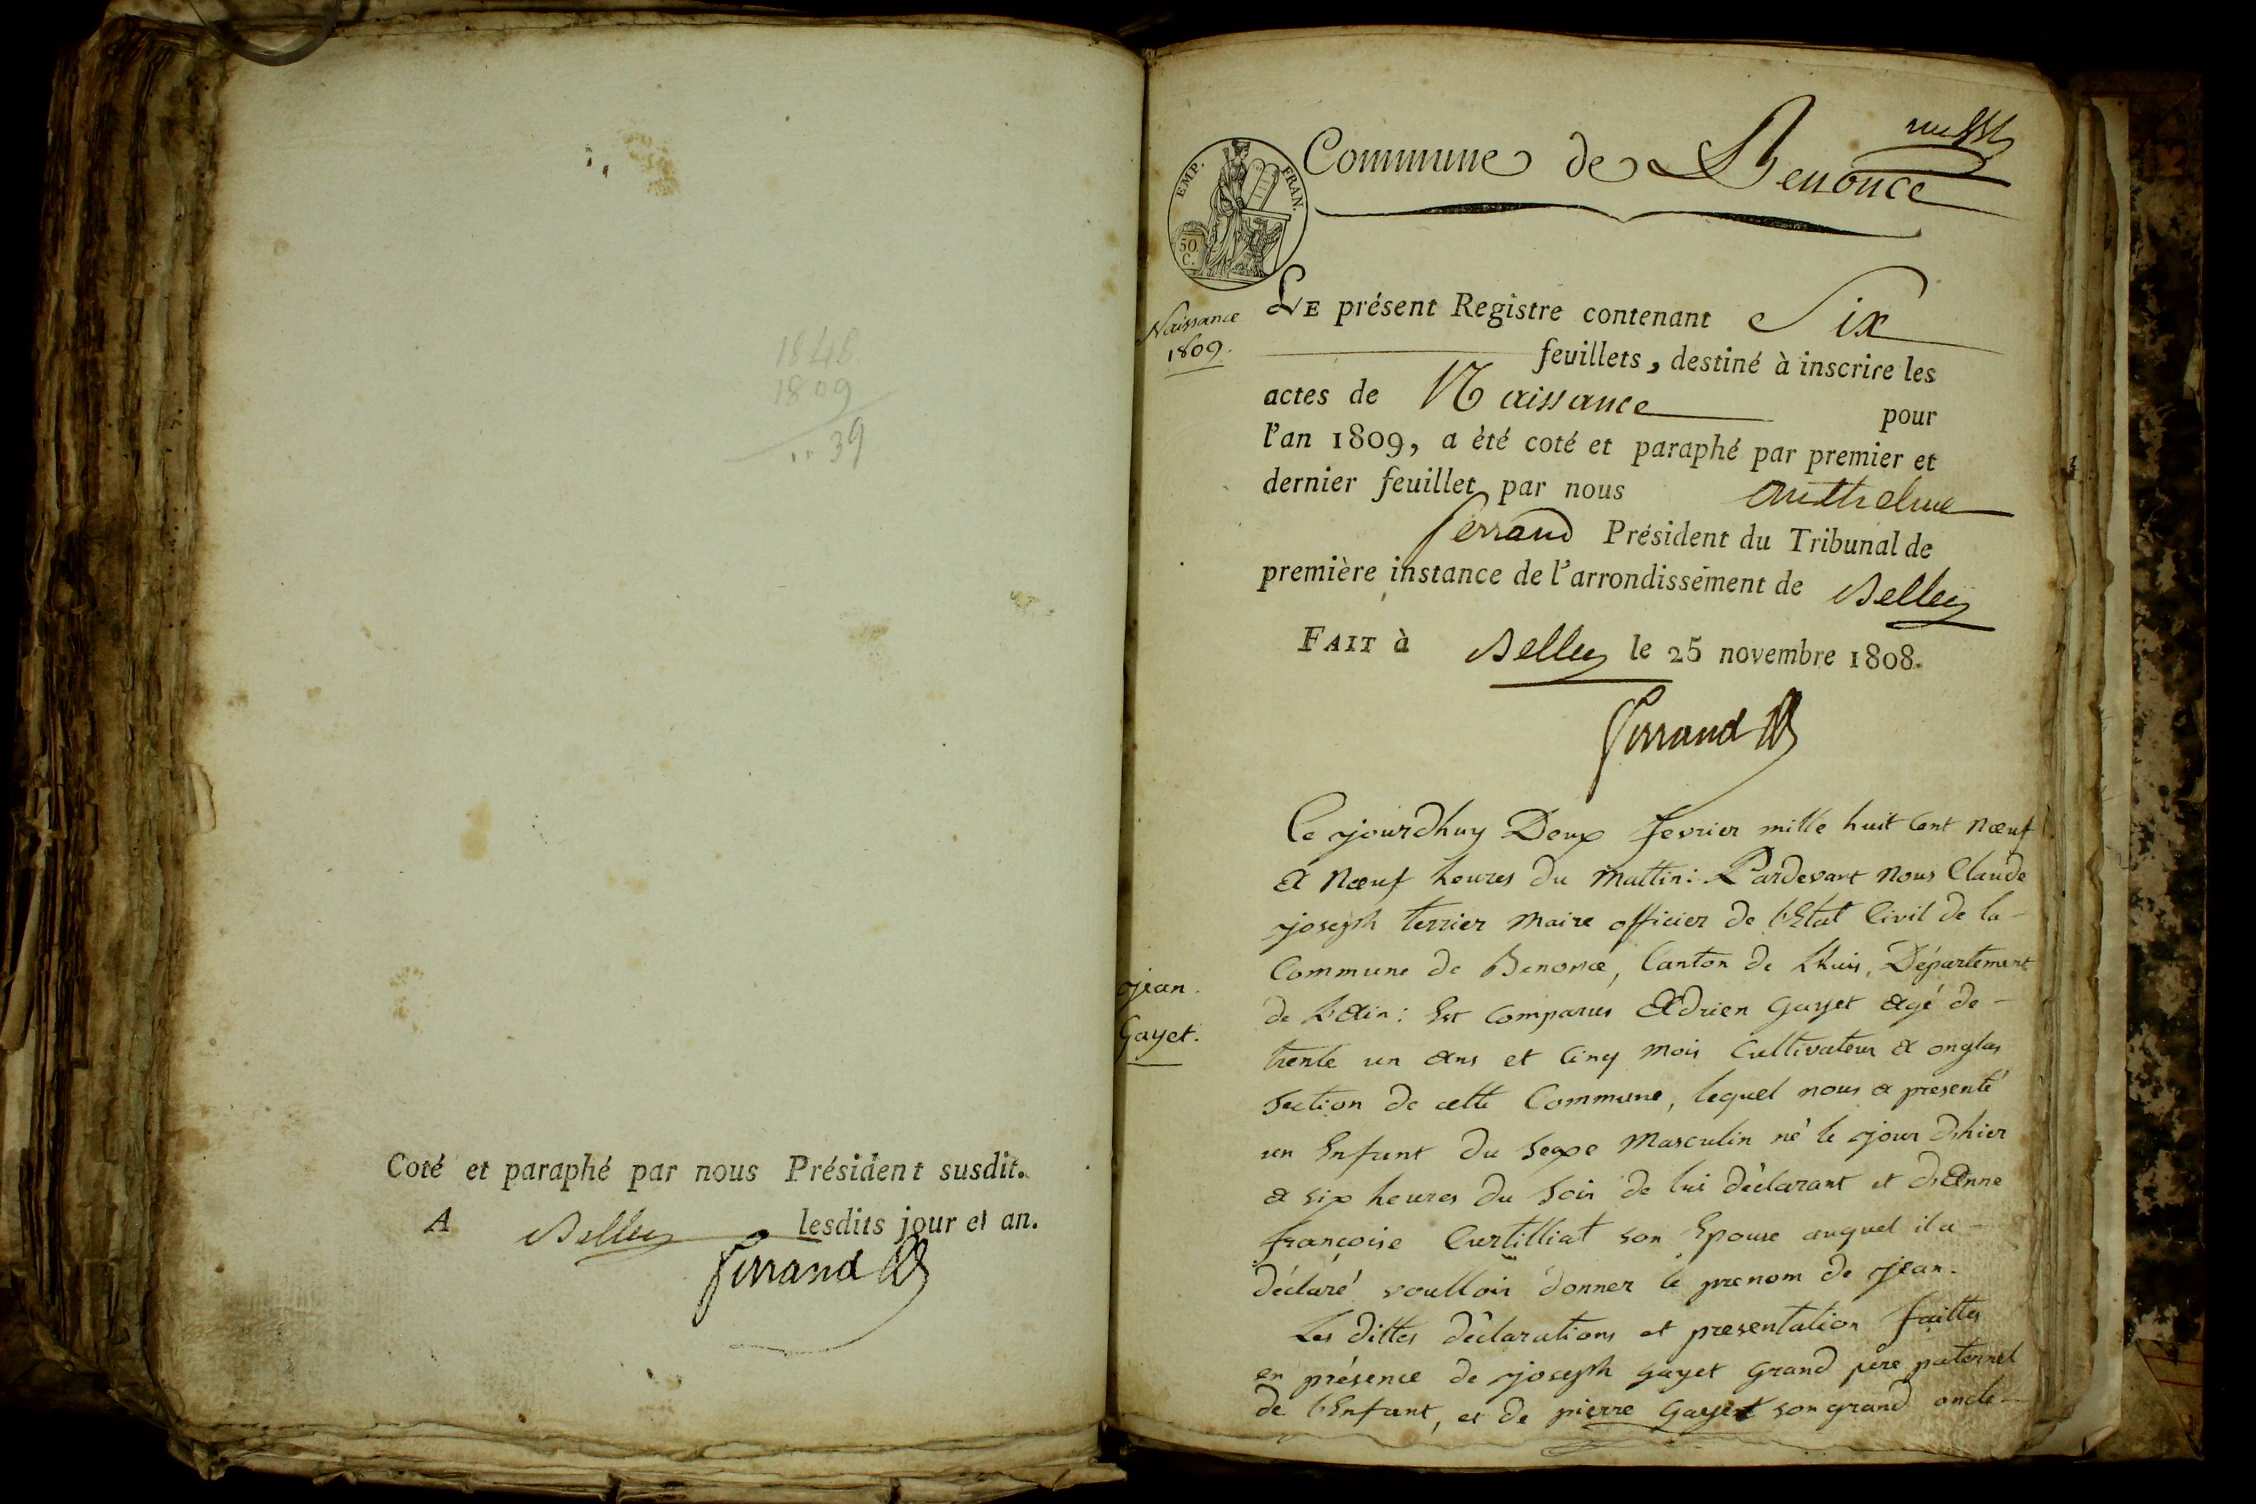 1848
1809
39
Coté et paraphé par nous Président susdit.
A Belley lesdits jour et an.
Ferrand
EMP. FRAN.
50 C.
Commune de Benonce
Naissance
1809.
LE présent Registre contenant Six
feuillets, destiné à inscrire les
actes de Naissance pour
l'an 1809, a été coté et paraphé par premier et
dernier feuillet par nous anthelme
ferrand Président du Tribunal de
première instance de l'arrondissement de Belley
FAIT à Belley le 25 novembre 1808.
Ferrand
Ce jourdhuy Deux fevrier mille huit Cent Nœuf
a Nœuf heures du Mattin: Pardevant Nous Claude
joseph terrier Maire officier de l'Etat Civil de la
Commune de Benonce, Canton de Lhuis, Département
de L'Ain: Est Comparus Adrien Gayet agé de
trente un ans et Cinq Mois Cultivateur a onglas
Section de cette Commune, lequel nous a presenté
un Enfant du Sexe Masculin né le jour d'hier
a six heures du Soir de lui déclarant et d'Anne
françoise Curtilliat son Epouse auquel il a
déclaré voulloir donner le prenom de jean.
Les dittes déclarations et presentation faittes
en présence de joseph gayet Grand père paternel
de l'Enfant, et de pierre Gayet son grand oncle
jean.
Gayet.